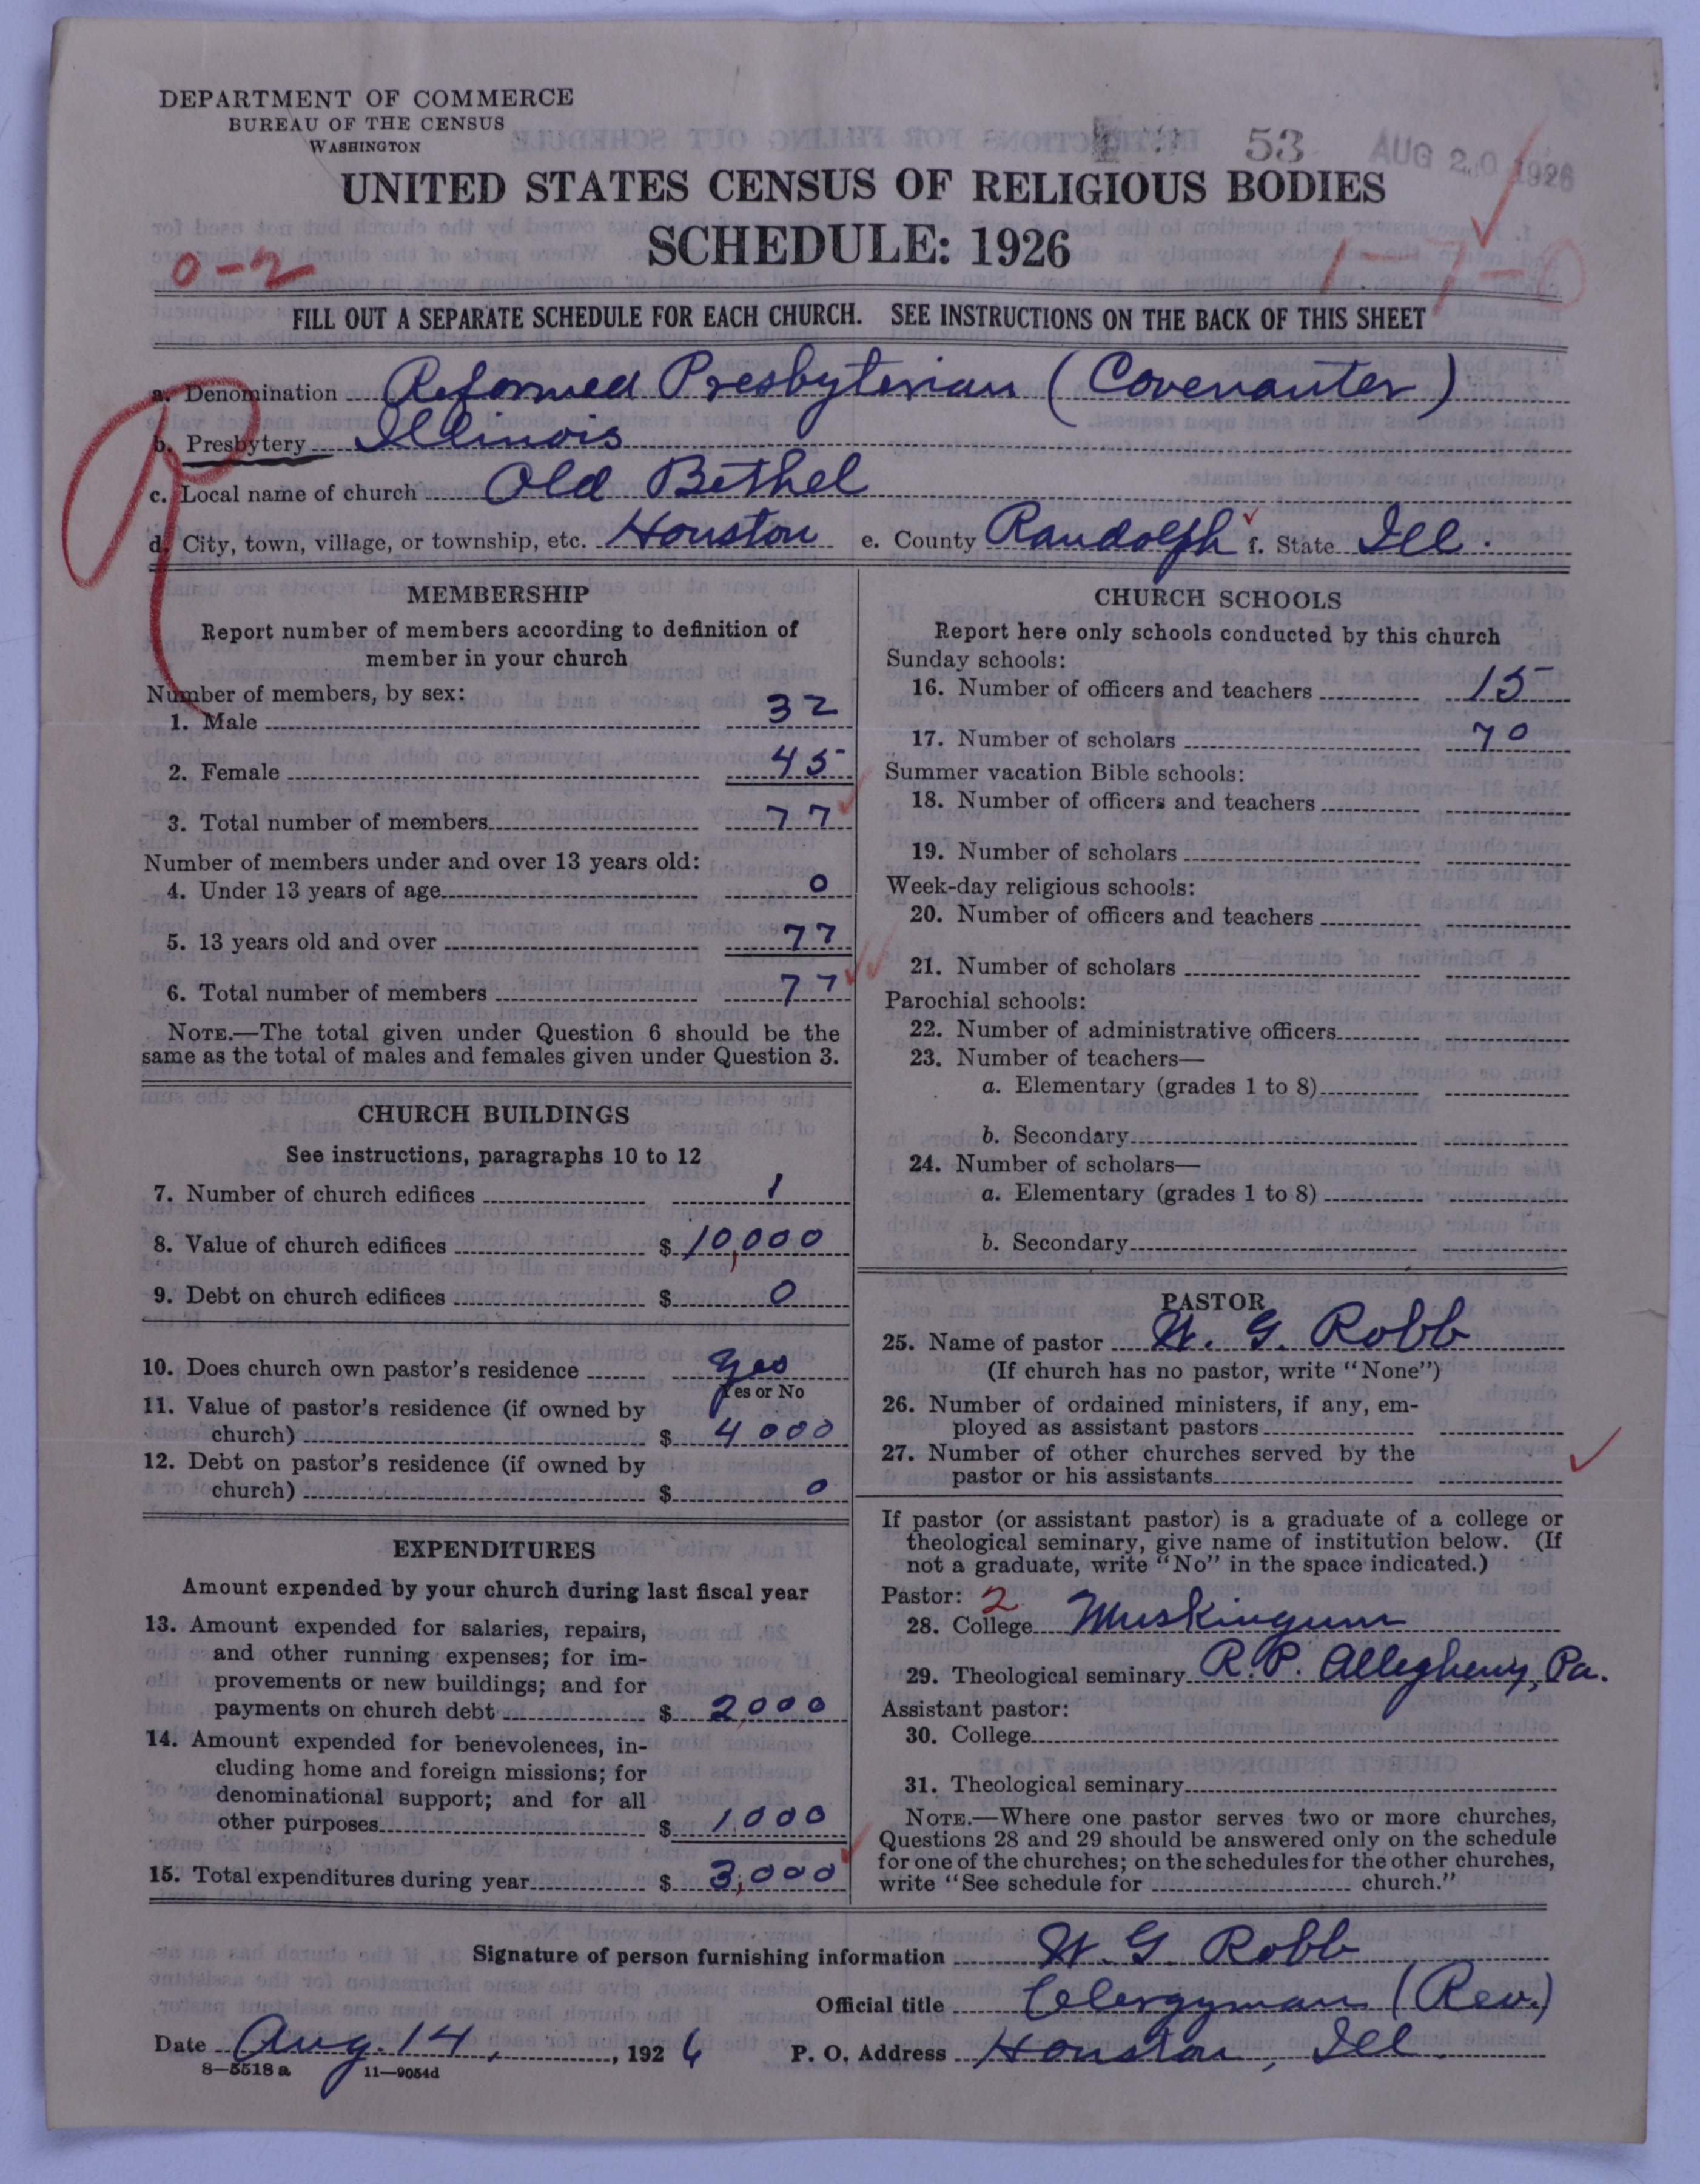 DEPARTMENT OF COMMERCE
BUREAU OF THE CENSUS
WASHINGTON
53 AUG 20 1926
UNITED STATES CENSUS OF RELIGIOUS BODIES
SCHEDULE: 1926
0-2
1-7-0
FILL OUT A SEPARATE SCHEDULE FOR EACH CHURCH. SEE INSTRUCTIONS ON THE BACK OF THIS SHEET
a. Denomination Reformed Presbyterian (Covenanter)
b. Presbytery Illinois
c. Local name of church Old Bethel
d. City, town, village, or township, etc. Houston e. County Randolph f. State Ill.
MEMBERSHIP
Report number of members according to definition of
member in your church
Number of members, by sex:
1. Male 32
2. Female 45
3. Total number of members 77
Number of members under and over 13 years old:
4. Under 13 years of age 0
5. 13 years old and over 77
6. Total number of members 77
NOTE.—The total given under Question 6 should be the
same as the total of males and females given under Question 3.
CHURCH BUILDINGS
See instructions, paragraphs 10 to 12
7. Number of church edifices 1
8. Value of church edifices $ 10,000
9. Debt on church edifices $ 0
10. Does church own pastor's residence Yes
Yes or No
11. Value of pastor's residence (if owned by
church) $ 4000
12. Debt on pastor's residence (if owned by
church) $ 0
EXPENDITURES
Amount expended by your church during last fiscal year
13. Amount expended for salaries, repairs,
and other running expenses; for im-
provements or new buildings; and for
payments on church debt $ 2,000
14. Amount expended for benevolences, in-
cluding home and foreign missions; for
denominational support; and for all
other purposes $ 1000
15. Total expenditures during year $ 3,000
CHURCH SCHOOLS
Report here only schools conducted by this church
Sunday schools:
16. Number of officers and teachers 15
17. Number of scholars 70
Summer vacation Bible schools:
18. Number of officers and teachers
19. Number of scholars
Week-day religious schools:
20. Number of officers and teachers
21. Number of scholars
Parochial schools:
22. Number of administrative officers
23. Number of teachers—
a. Elementary (grades 1 to 8)
b. Secondary
24. Number of scholars—
a. Elementary (grades 1 to 8)
b. Secondary
PASTOR
25. Name of pastor W. G. Robb
(If church has no pastor, write "None")
26. Number of ordained ministers, if any, em-
ployed as assistant pastors
27. Number of other churches served by the
pastor or his assistants
If pastor (or assistant pastor) is a graduate of a college or
theological seminary, give name of institution below. (If
not a graduate, write "No" in the space indicated.)
Pastor: 2
28. College Muskingum
29. Theological seminary R.P. Allegheny, Pa.
Assistant pastor:
30. College
31. Theological seminary
NOTE.—Where one pastor serves two or more churches,
Questions 28 and 29 should be answered only on the schedule
for one of the churches; on the schedules for the other churches,
write "See schedule for church."
Signature of person furnishing information W. G. Robb
Official title Clergyman (Rev.)
Date Aug. 14, 1926 P. O. Address Houston, Ill.
8—5518a 11—9054d